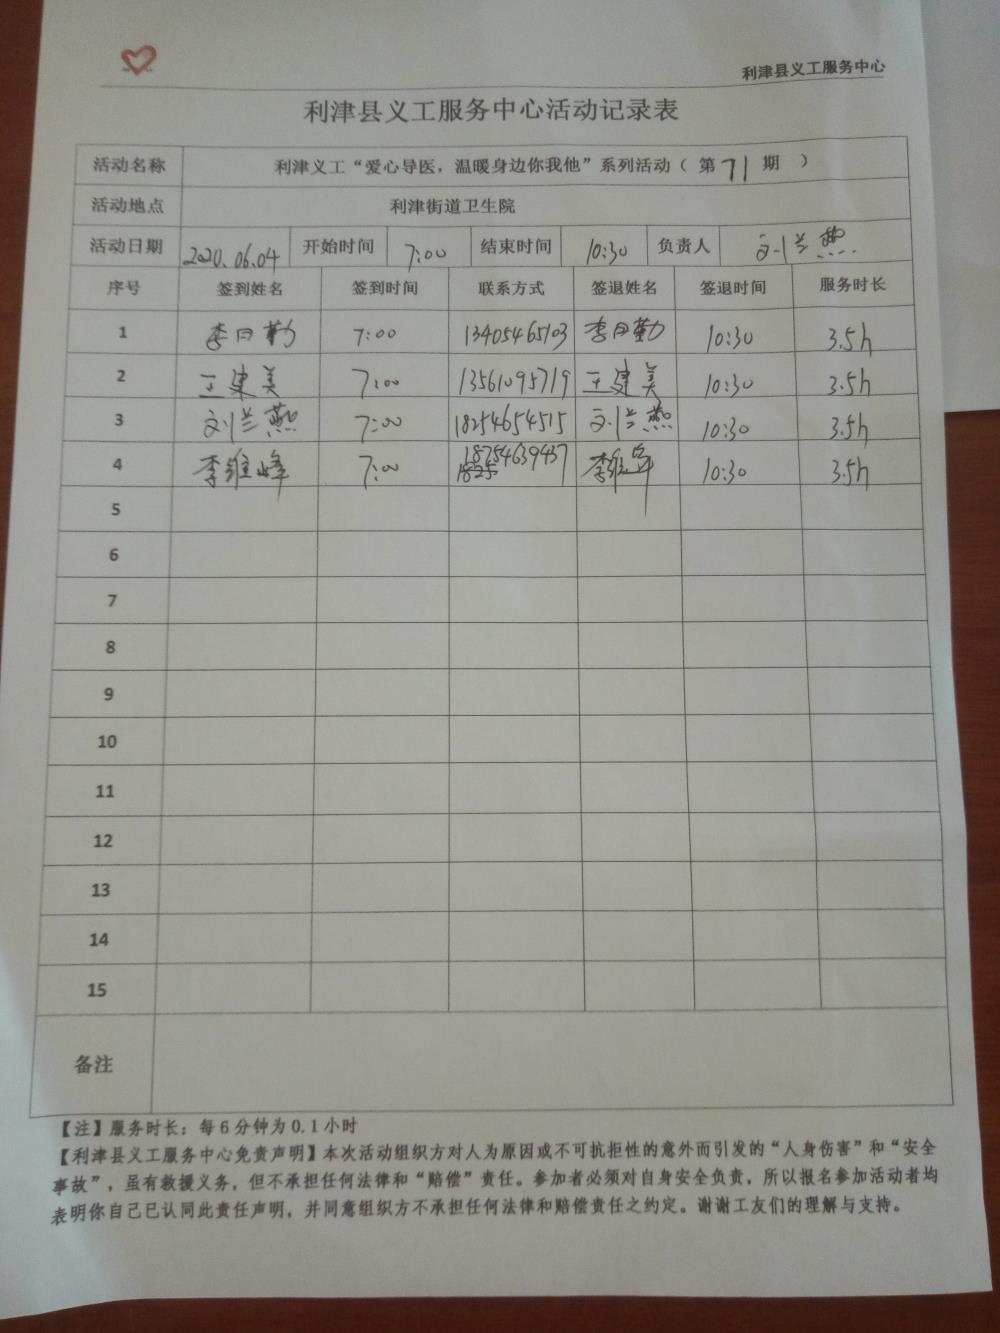 利津县义工服务中心
利津县义工服务中心活动记录表
活动名称 利津义工“爱心导医，温暖身边你我他”系列活动（ 第 71 期 ）
活动地点 利津街道卫生院
活动日期 2020.06.04 开始时间 7:00 结束时间 10:30 负责人 刘兰燕
序号 签到姓名 签到时间 联系方式 签退姓名 签退时间 服务时长
1 李日勤 7:00 13405465103 李日勤 10:30 3.5h
2 王建美 7:00 13561095719 王建美 10:30 3.5h
3 刘兰燕 7:00 18254654515 刘兰燕 10:30 3.5h
4 李维峰 7:00 18254639437 李维峰 10:30 3.5h
5
6
7
8
9
10
11
12
13
14
15
备注
【注】服务时长：每6分钟为0.1小时
【利津县义工服务中心免责声明】本次活动组织方对人为原因或不可抗拒性的意外而引发的“人身伤害”和“安全
事故”，虽有救援义务，但不承担任何法律和“赔偿”责任。参加者必须对自身安全负责，所以报名参加活动者均
表明你自己已认同此责任声明，并同意组织方不承担任何法律和赔偿责任之约定。谢谢工友们的理解与支持。